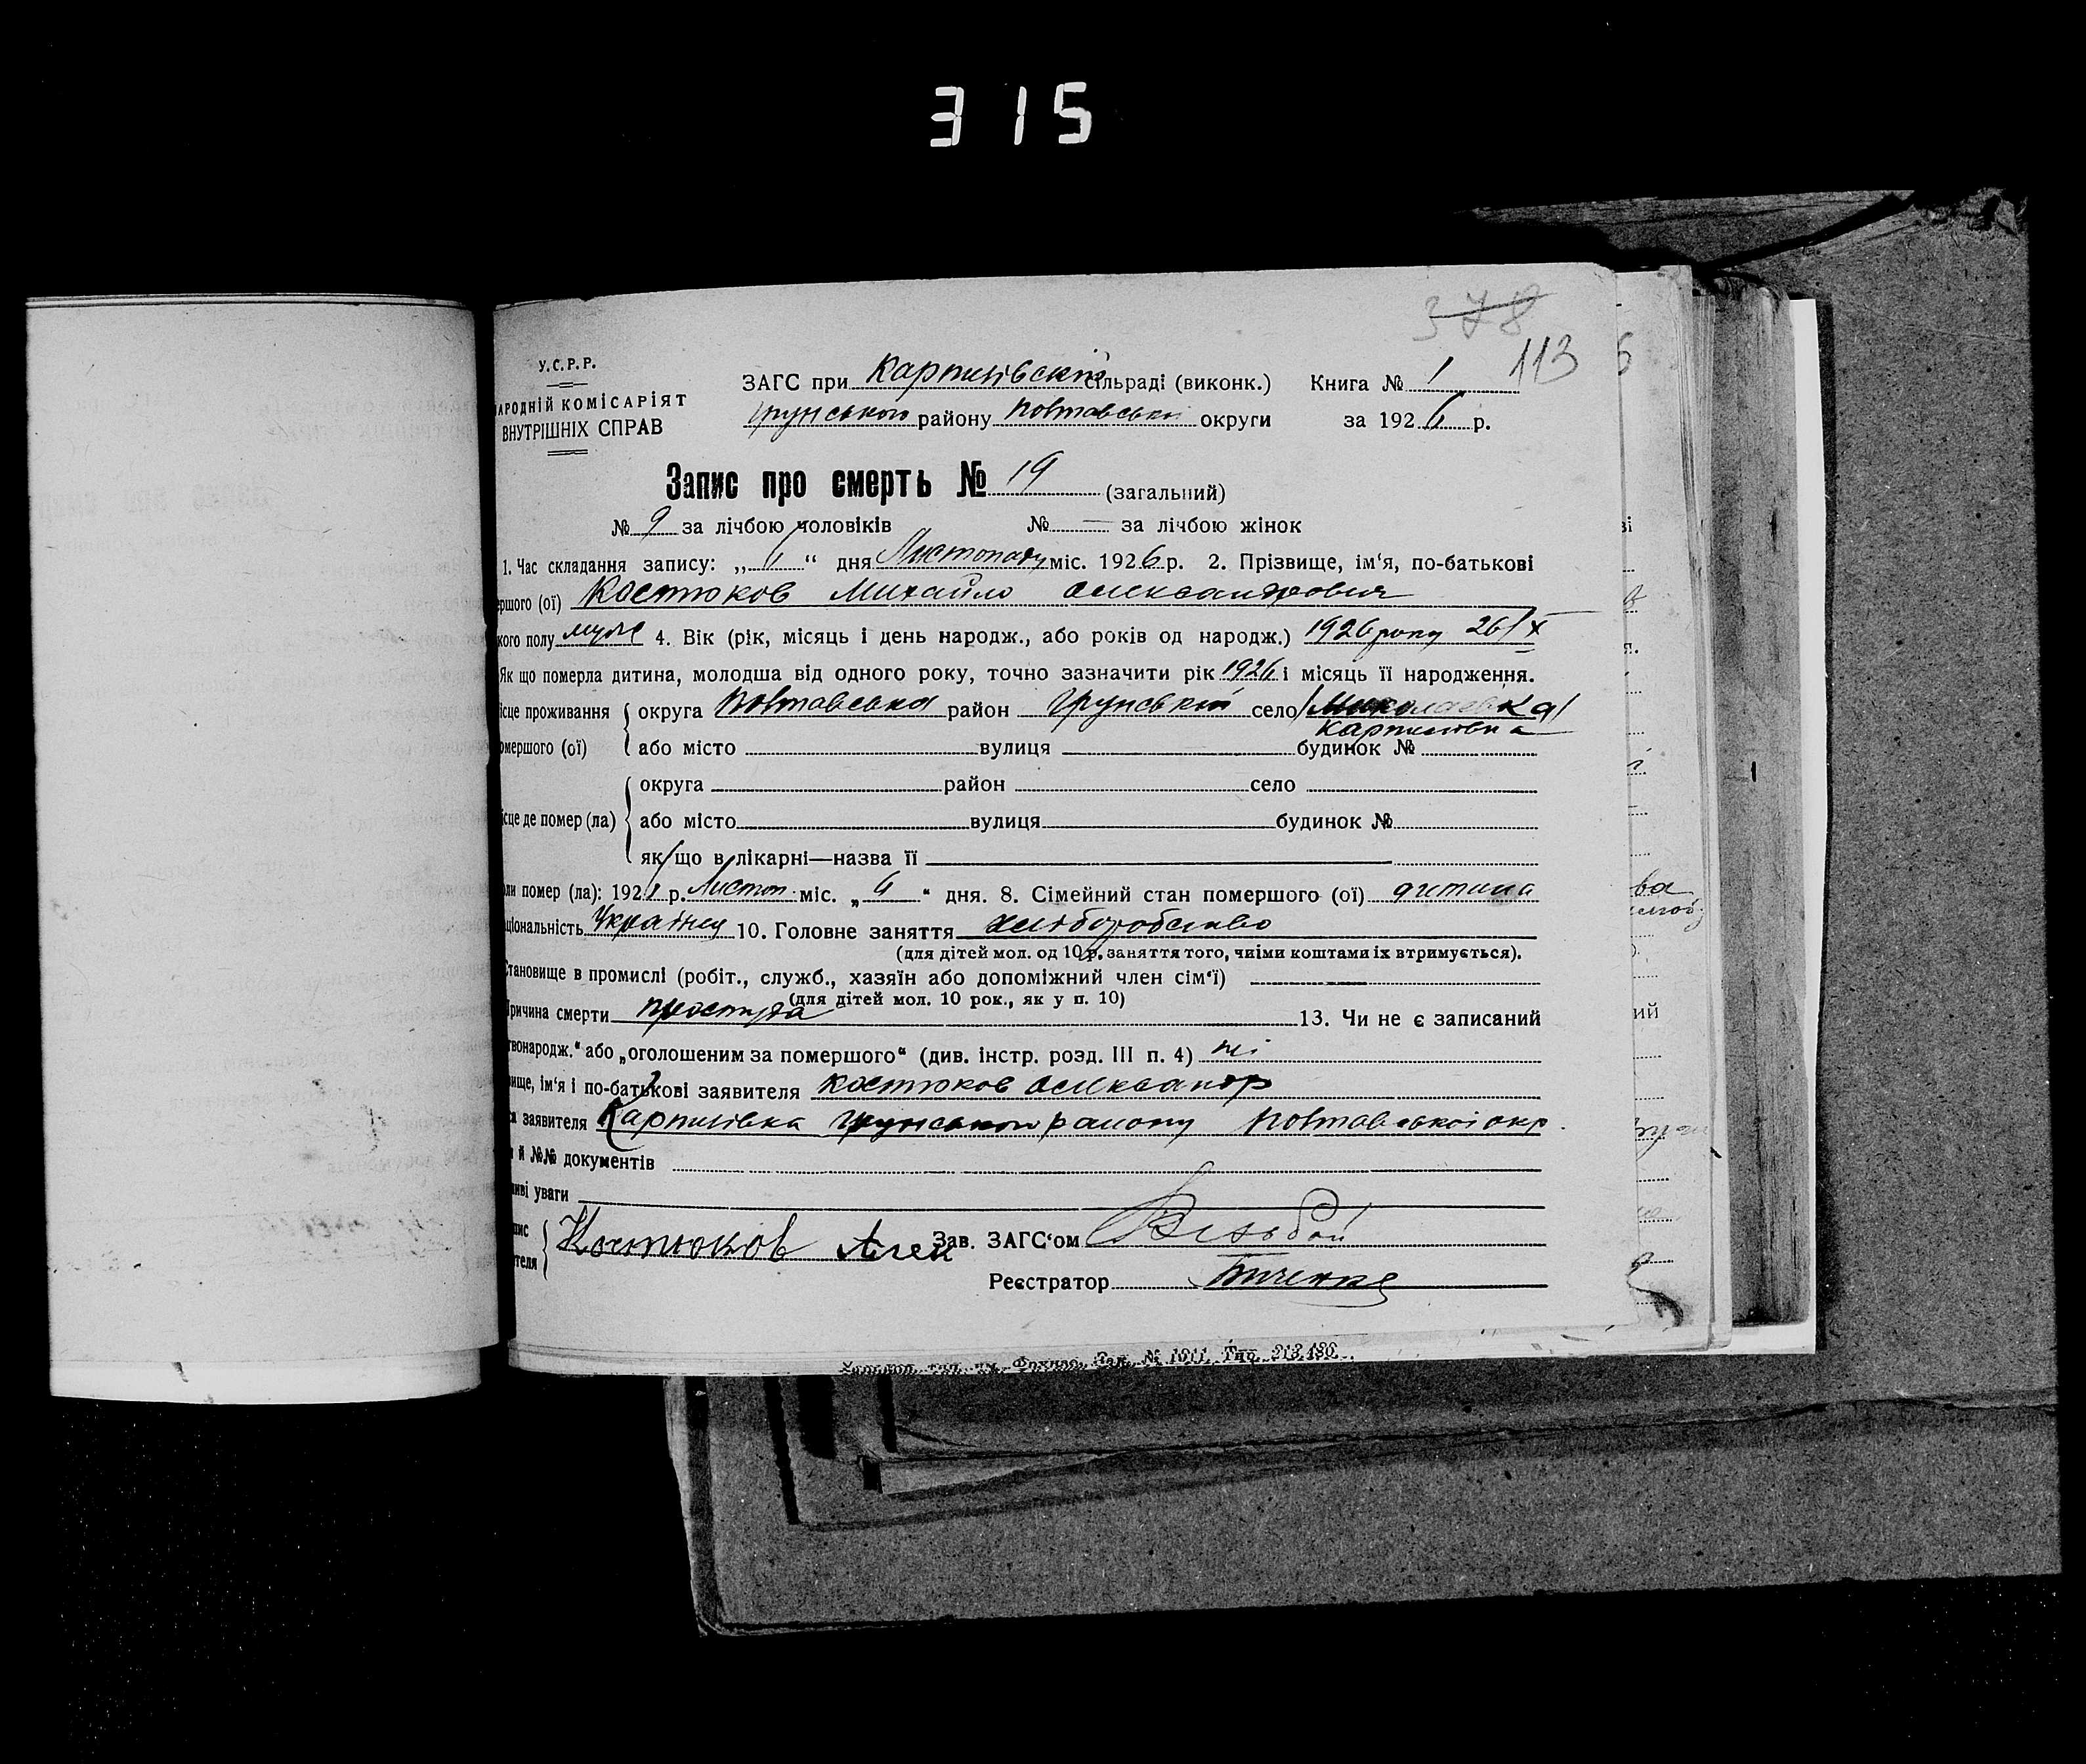 315
378
113
У.С.Р.Р.
АРОДНІЙ КОМІСАРІЯТ
ВНУТРІШНІХ СПРАВ
ЗАГС при Карпилівській сільраді (виконк.) Книга № 1
Грунського району Полтавської округи за 1926 р.
Запис про смерть № 19 (загальний)
№ 9 за лічбою чоловіків № — за лічбою жінок
1. Час складання запису: „ “ дня Листопаду міс. 1926 р. 2. Прізвище, ім‘я, по-батькові
ершого (ої) Костюков Михайло Олександрович
кого полу муж 4. Вік (рік, місяць і день народж., або років од народж.) 1926 року 26/X
Як що померла дитина, молодша від одного року, точно зазначити рік 1926 і місяць її народження.
ісце проживання округа Полтавська район Грунській село /Миколаевка/
Карпилівка
омершого (ої) або місто вулиця будинок №
округа район село
ісце де помер (ла) або місто вулиця будинок №
як що в лікарні—назва її
ли помер (ла): 192 р. Листоп. міс. „6“ дня. 8. Сімейний стан помершого (ої) дитина
ціональність Українец 10. Головне заняття хліборобство
(для дітей мол. од 10 р. заняття того, чиїми коштами їх втримується).
Становище в промислі (робіт., служб., хазяїн або допоміжний член сім‘ї)
(для дітей мол. 10 рок., як у п. 10)
Причина смерти простуда 13. Чи не є записаний
твонародж.“ або „оголошеним за помершого“ (див. інстр. розд. III п. 4) ні
вище, ім‘я і по-батькові заявителя Костюков Олександр
са заявителя Карпилівка Грунського району Полтавської окр.
и й №№ документів
ливі уваги
пис
ителя Костюков Алек Зав. ЗАГС‘ом
Реєстратор